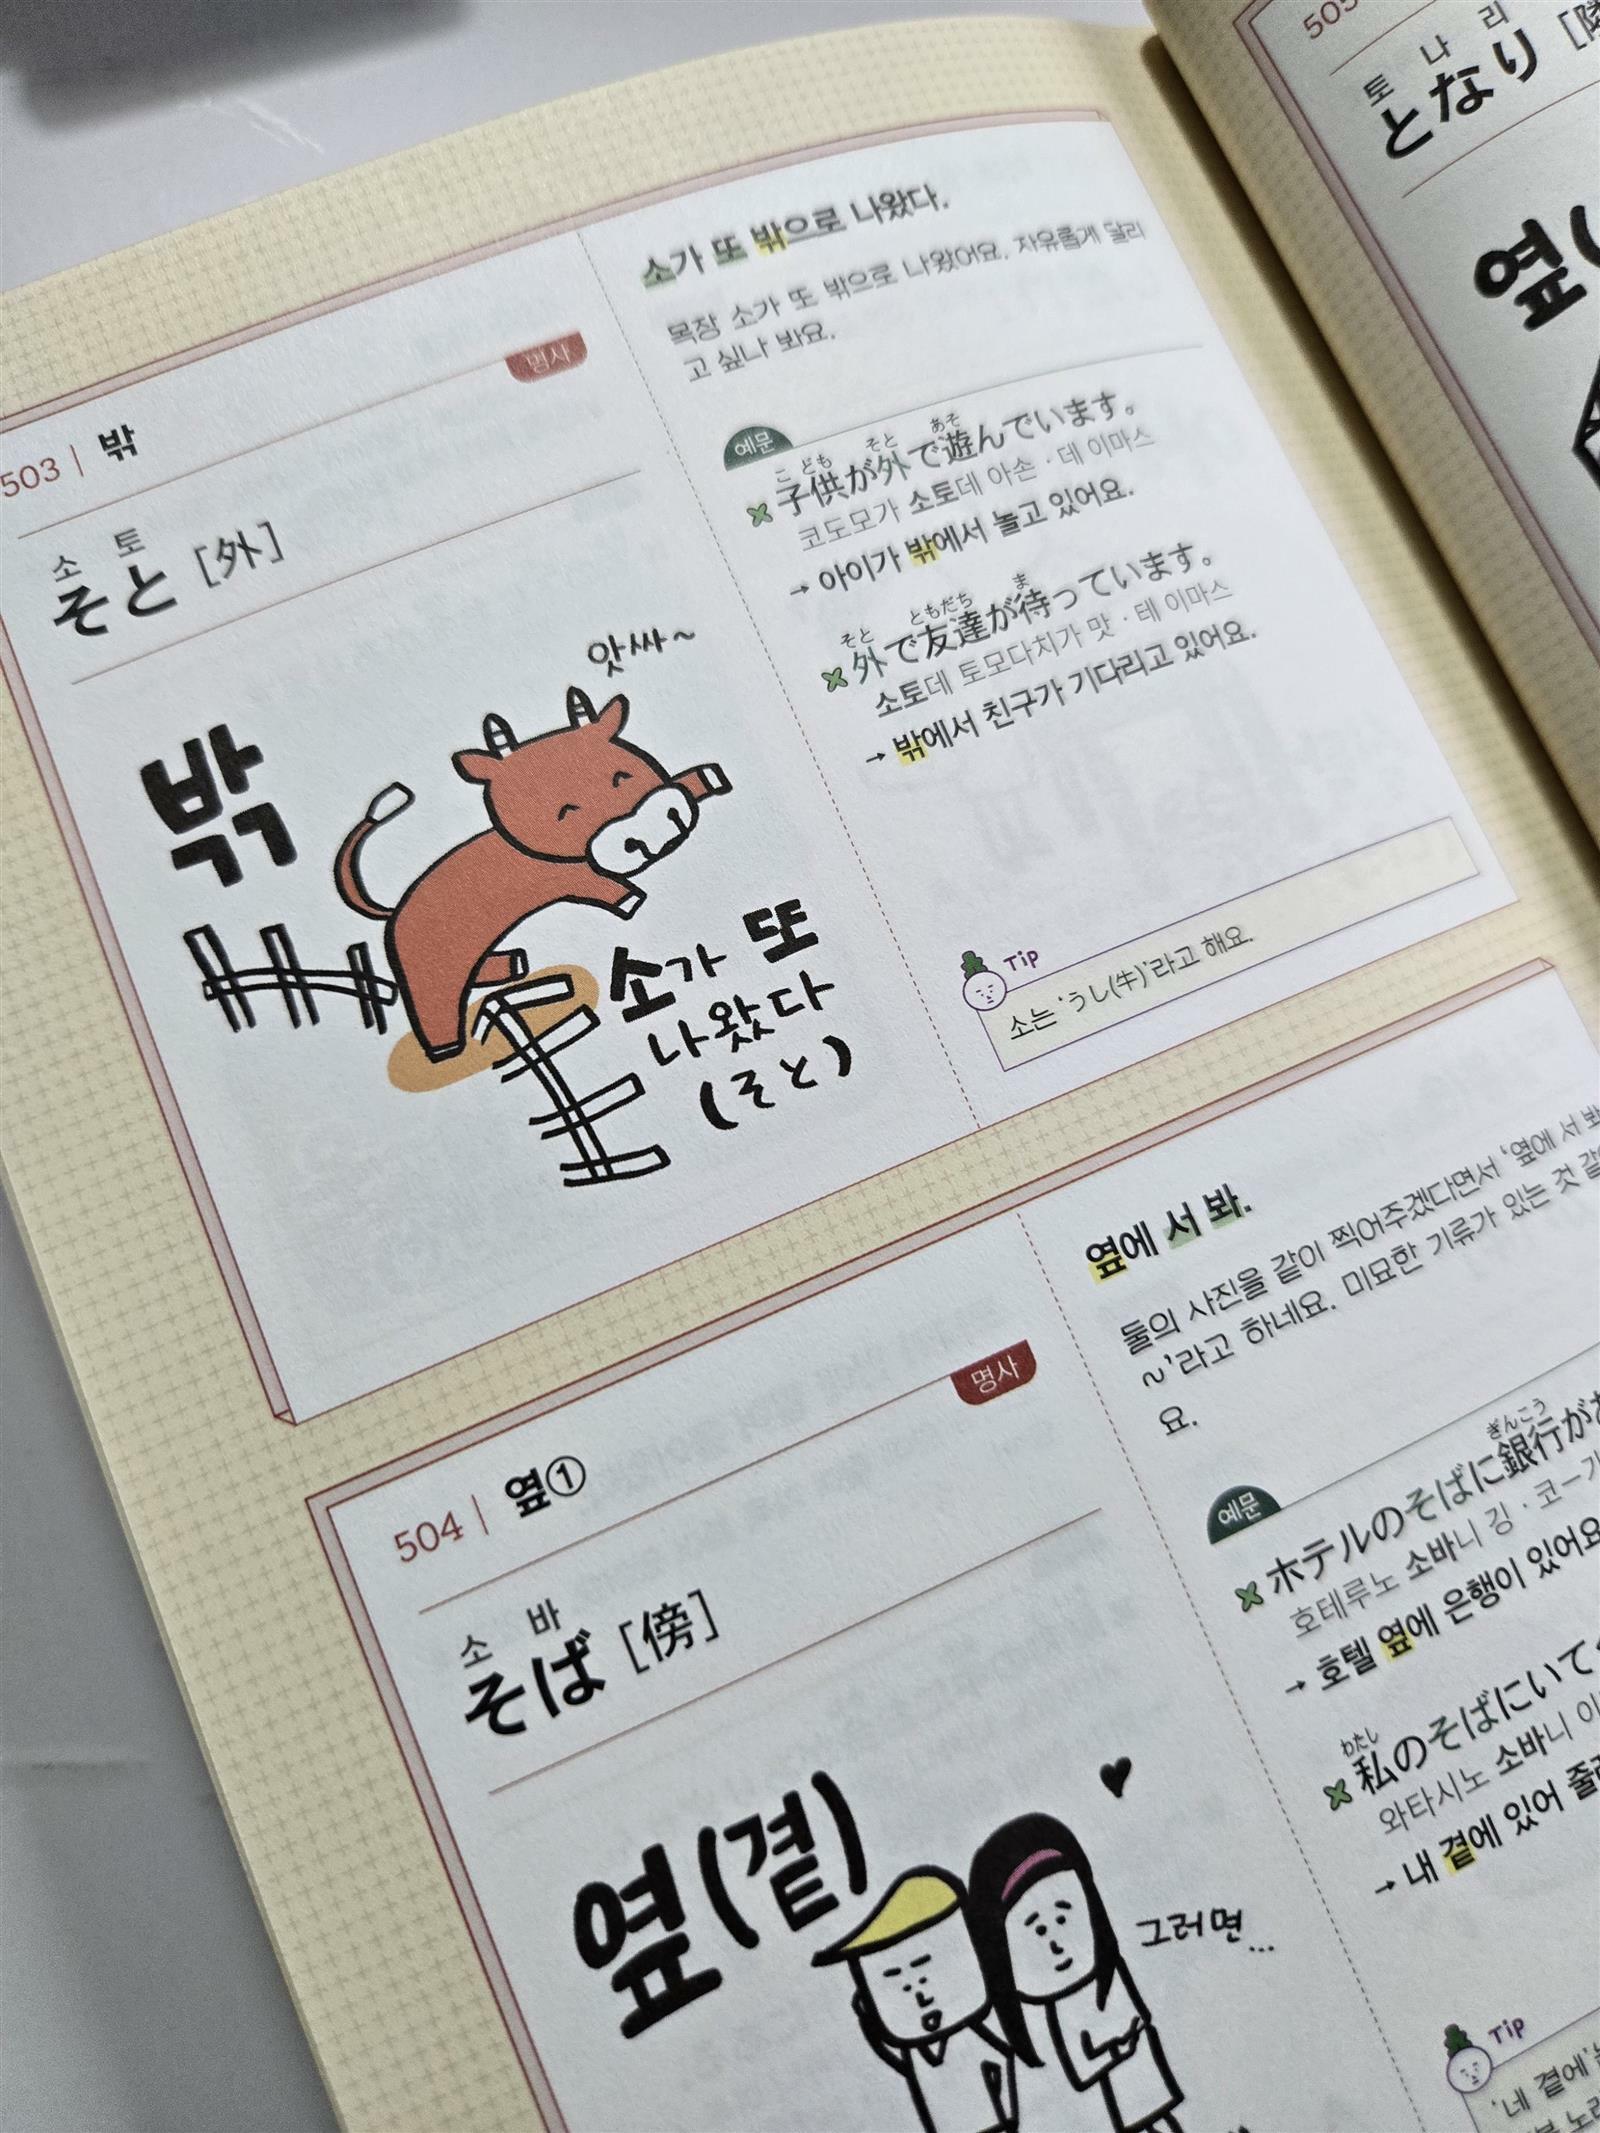 503 | 밖
명사
소 토
そと [外]
밖
앗싸~
소가 또
나왔다
(そと)
소가 또 밖으로 나왔다.
목장 소가 또 밖으로 나왔어요. 자유롭게 달리
고 싶나 봐요.
예문
こ ども そと あそ
子供が外で遊んでいます。
코도모가 소토데 아손·데 이마스
→ 아이가 밖에서 놀고 있어요.
そと ともだち ま
外で友達が待っています。
소토데 토모다치가 맛·테 이마스
→ 밖에서 친구가 기다리고 있어요.
Tip
소는 'うし(牛)'라고 해요.
504 | 옆①
명사
소 바
そば [傍]
옆(곁)
그러면...
옆에 서 봐.
둘의 사진을 같이 찍어주겠다면서 '옆에 서 봐
~'라고 하네요. 미묘한 기류가 있는 것 같
요.
예문
ぎんこう
ホテルのそばに銀行が
호테루노 소바니 깅·코-가
→ 호텔 옆에 은행이 있어요
わたし
私のそばにいて
와타시노 소바니 이
→ 내 곁에 있어 줄
Tip
'네 곁에'
505
토 나 리
となり
옆(